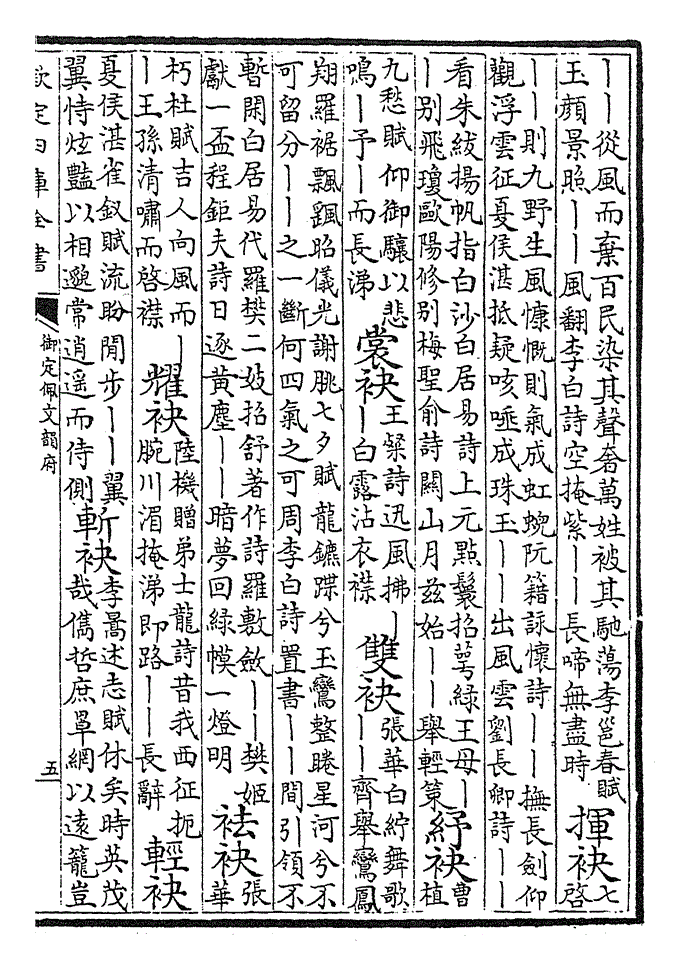 丨丨從風而棄百民染其聲奢萬姓被其馳蕩李邕春賦玉顔景照丨丨風翻李白詩空掩紫丨丨長啼無盡時揮袂七啓
丨丨則九野生風慷慨則氣成虹蜺阮籍詠懷詩丨丨撫長劍仰觀浮雲征夏侯湛抵疑咳唾成珠玉丨丨出風雲劉長卿詩丨丨
看朱紱揚帆指白沙白居易詩上元點鬟招萼綠王母丨丨別飛瓊歐陽修別梅聖俞詩關山月茲始丨丨舉輕策紓袂曹植
九愁賦仰御驤以悲鳴丨予丨而長涕裳袂王粲詩迅風拂丨丨白露沾衣襟雙袂張華白紵舞歌丨丨齊舉鸞鳳
翔羅裾飄颻昭儀光謝朓七夕賦龍鑣蹀兮玉鸞整睠星河兮不可留分丨丨之一斷何四氣之可周李白詩置書丨丨間引領不
暫閑白居易代羅樊二妓招舒著作詩羅敷斂丨丨樊姬獻一盃程鉅夫詩日逐黃塵丨丨暗夢回綠幙一燈明袪袂張華
朽杜賦吉人向風而丨丨王孫清嘯而啓襟耀袂陸機贈弟士龍詩昔我西征扼腕川湄掩涕即路丨丨長辭輕袂
夏侯湛雀釵賦流盼閒步丨丨翼翼恃炫豔以相邈常逍遥而侍側斬袂李暠述志賦休矣時英茂哉儁哲庶罩網以遠籠豈
欽定四庫全書
御定佩文韻府
五